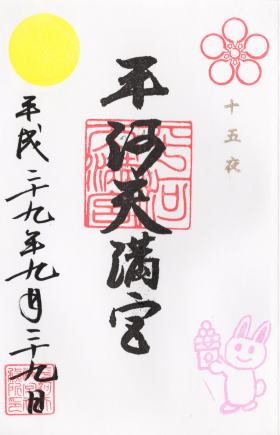 十五夜
平河天満宮
平成二十九年九月二十九日